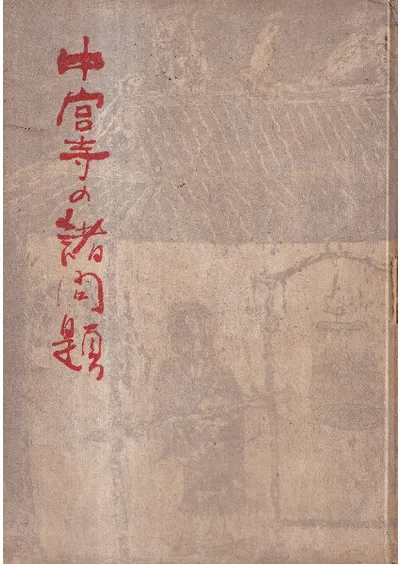 中宮寺の諸問題